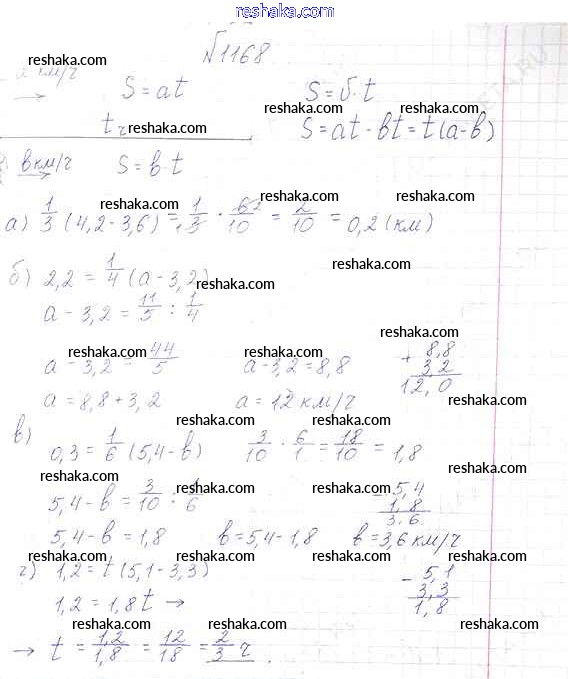 reshaka.com
№1168
reshaka.com
a км/ч
→ S = at S = v·t
reshaka.com
t ч reshaka.com S = at - bt = t(a-b)
reshaka.com
в км/ч S = b·t
reshaka.com
reshaka.com reshaka.com
а) 1/3 (4,2-3,6) = 1/3 · 6/10 = 2/10 = 0,2 (км)
reshaka.com
reshaka.com
б) 2,2 = 1/4 (a - 3,2)
reshaka.com
a - 3,2 = 11/5 : 1/4
reshaka.com
reshaka.com reshaka.com
a - 3,2 = 44/5 a-3,2 = 8,8 + 8,8
3,2
a = 8,8 + 3,2 a = 12 км/ч 12,0
reshaka.com reshaka.com
в)
0,3 = 1/6 (5,4-b) 3/10 · 6/1 = 18/10 = 1,8
reshaka.com
reshaka.com
reshaka.com
5,4-b = 3/10 : 1/6 - 5,4
1,8
reshaka.com
3,6
5,4-b = 1,8 b = 5,4-1,8 b = 3,6 км/ч
reshaka.com reshaka.com reshaka.com
г) 1,2 = t(5,1-3,3) - 5,1
3,3
reshaka.com
1,2 = 1,8t → 1,8
reshaka.com reshaka.com
→ t = 1,2/1,8 = 12/18 = 2/3 ч.
reshaka.com reshaka.com